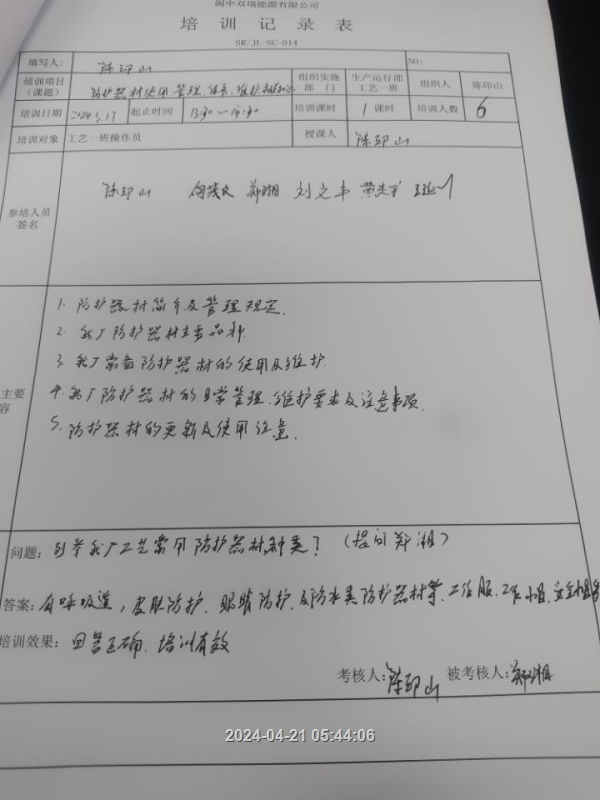 阆中双瑞能源有限公司
培训记录表
SR/JL-SC-014
填写人： 陈印山 NO:
培训项目（课题） 防护器材使用、管理 组织实施部门 生产运行部工艺一班 组织人 陈印山
培训日期 2024.5.17 起止时间 13:30～14:30 培训课时 1课时 培训人数 6
培训对象 工艺一班操作员 授课人 陈印山
参培人员签名 陈印山 郑湘 刘文丰
主要
容
1. 防护器材简介及管理规定.
2. 我厂防护器材主要品种.
3. 我厂常备防护器材的使用及维护.
4. 我厂防护器材的日常管理、维护要求及注意事项.
5. 防护器材的更新及使用注意.
问题： 列举我厂工艺常用防护器材种类？（提问郑湘）
答案： 有呼吸道，皮肤防护、眼睛防护、及防水类防护器材等、工作服、工作帽、安全帽
培训效果： 回答正确、培训有效
考核人： 陈印山 被考核人： 郑湘
2024-04-21 05:44:06